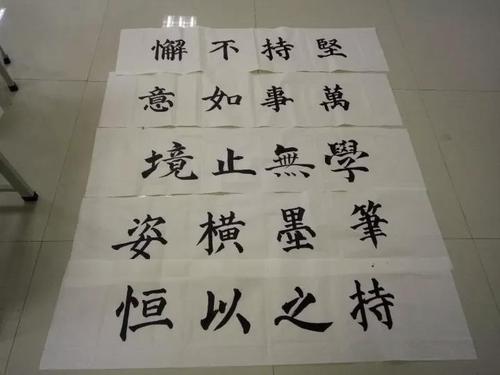 堅持不懈
萬事如意
學無止境
筆墨橫姿
持之以恒